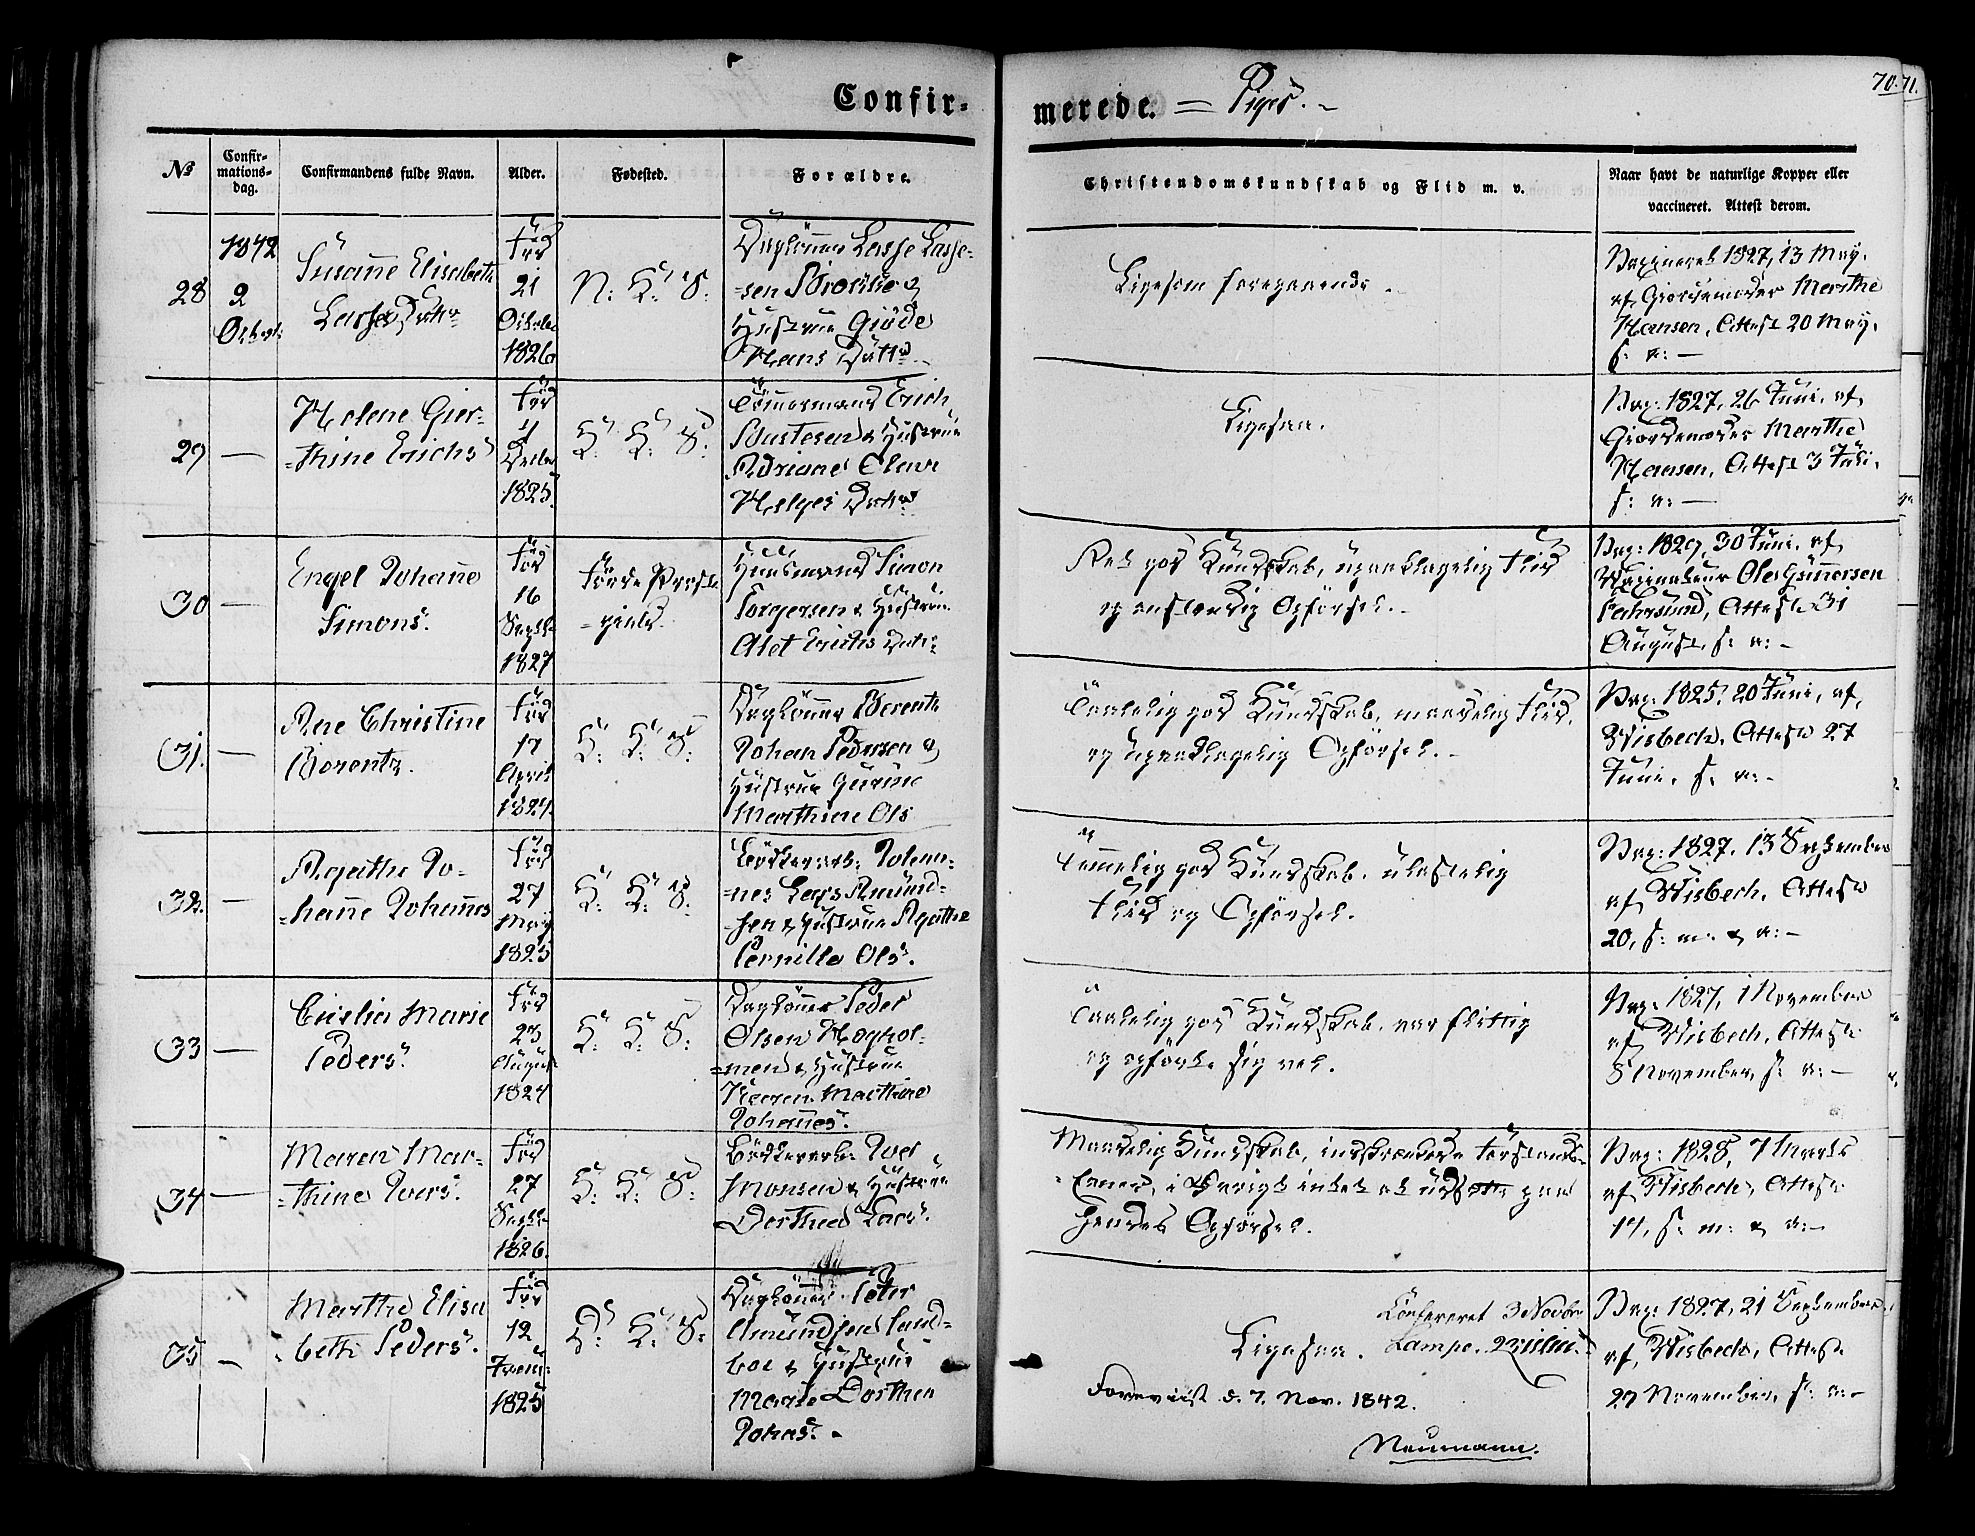 70. 71.
Confir-
merede. = Piger. -
No
Confir-
mations-
dag.
Confirmandens fulde Navn.
Alder.
Fødested.
Forældre.
Christendomskundskab og Flid m. v.
Naar havt de naturlige Kopper eller
vaccineret. Attest derom.
28
1842
2
Octobr.
Susanne Elisabeth
Lasse Dattr
Fød
21
October
1826
N: K: S:
Daglönner Lasse Lasse-
-sen &
Hustrue Giöde
Hans Dattr
Ligesom foregaaende.
Vaccineret 1827, 13 May,
af Giordemoder Marthe
Hansen, Attest 20 May,
s: a: -
29 —
Helene Gier-
-thine Erichs
Fød
4
Decbr
1825.
K: K: S:
Tömmermand Erich
Bustesen & Hustrue
Adriane Olava
Helges Dattr
Ligesaa.
Vac: 1827, 26 Juni, af
Giordemoder Marthe
Hansen, Attest 3 Juli,
s: a: -
30 —
Engel Johanne
Simons.
Fød
16
Septbr
1827
Förde Præste-
-gield.
Huusmand Simon
Torgersen & Hustrue
Alet Erichs Dattr
Ret god Kundskab, upaaklagelig Flid
og anstændig Opförsel. -
Vac: 1829, 30 Juni, af
Vaccinateur Ole Gunnersen
Attest 31
August, s: a: -
31. —
Ane Christine
Berentz.
Fød
17
April
1824.
K: K: S:
Daglönner Berentz
Johan Pedersen &
Hustrue Gurine
Marthine Ols
Taalelig god Kundskab, maadelig Flid,
og upaaklagelig Opförsel. -
Vac: 1825, 20 Juni, af
Wisbech, Attest 27
Juni, s: a: -
32. —
Agathe Jo-
-hanne Johannes
Fød
27
May
1825
K: K: S:
Bödkersvend Johan-
-nes Lars Amund-
-sen & Hustrue Agathe
Pernille Ols.
Temmelig god Kundskab, ulastelig
Flid og Opförsel.
Vac: 1827, 13 September
af Wisbech, Attest
20, s: m: & a: -
33 —
Cicilia Marie
Peders.
Fød
23
August
1824
K: K: S:
Daglönner Peder
Olsen Hoghol-
-men & Hustrue
Karen Marthine
Johannes.
Taalelig god Kundskab, var flittig
og opförte sig vel.
Vac: 1827, 1 November
af Wisbech, Attest
8 November, s: a: -
34 —
Maren Mar-
-thine Ivers.
Fød
27
Septbr
1826.
K: K: S:
Iver
Monsen & Hustrue
Dorthea Lars.
Maadelig Kundskab, indskrænkede Forstands-
-Evner, i Övrigt intet at udsætte paa
hendes Opförsel.
Vac: 1828, 7 Marts
af Wisbech, Attest
17, s: m: & a: -
35 —
Marthe Elisa
-beth Peders.
Fød
12
Januar
1825
D: K: S:
Daglönner Peter
Amundsen Sand-
boe & Hustrue
Marte Dorthea
Johans. -
Ligesaa.
Confereret 3 Novbr
Foreviist d. 7. Nov. 1842.
Neumann.
Vac: 1827, 21 September,
af Wisbech, Attest
27 November, s: a: -